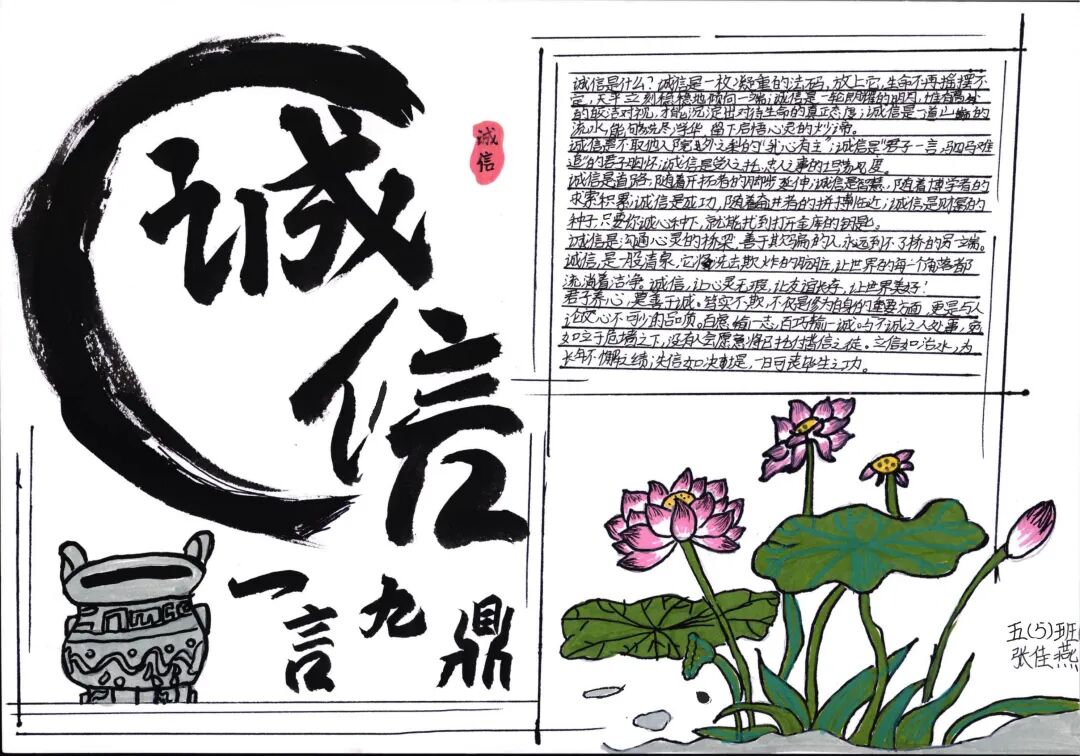 诚信
一言九鼎
诚信
诚信是什么？诚信是一枚凝重的法码，放上它，生命不再摇摆不
定，天平立刻稳稳地倾向一端；诚信是一轮明耀的明月，惟有
的皎洁对视，才能沉淀出对待生命的真正态度；诚信是一道山巅的
流水，能洗尽浮华，留下启悟心灵的
诚信是不取他人之梨的“我心有主”；诚信是“君子一言，驷马难
追”的君子胸怀；诚信是受人之托，忠人之事的
诚信是道路，随着开拓者的脚步延伸；诚信是智慧，随着博学者的
求索积累；诚信是成功，随着奋进者的拼搏临近；诚信是财富的
种子，只要你诚心种下，就能找到打开金库的钥匙。
诚信是沟通心灵的桥梁，善于欺骗的人，永远到不了桥的另一端。
诚信，是一股清泉，它将洗去欺炸的肮脏，让世界的每一个角落都
流淌着洁净。诚信，让心灵无瑕，让友谊长存，让世界美好！
君子养心，莫善于诚。笃实不欺，不仅是修为自身的重要方面，更是与人
论交心不可少的品质。百愚输一志，百巧输一诚，与不诚之人处事，宛
如立于危墙之下，没有人会愿意将己托付寡信之徒。立信如治水，为
长年不懈之绩；失信如决堤，一日可丧毕生之功。
五(5)班
张佳燕